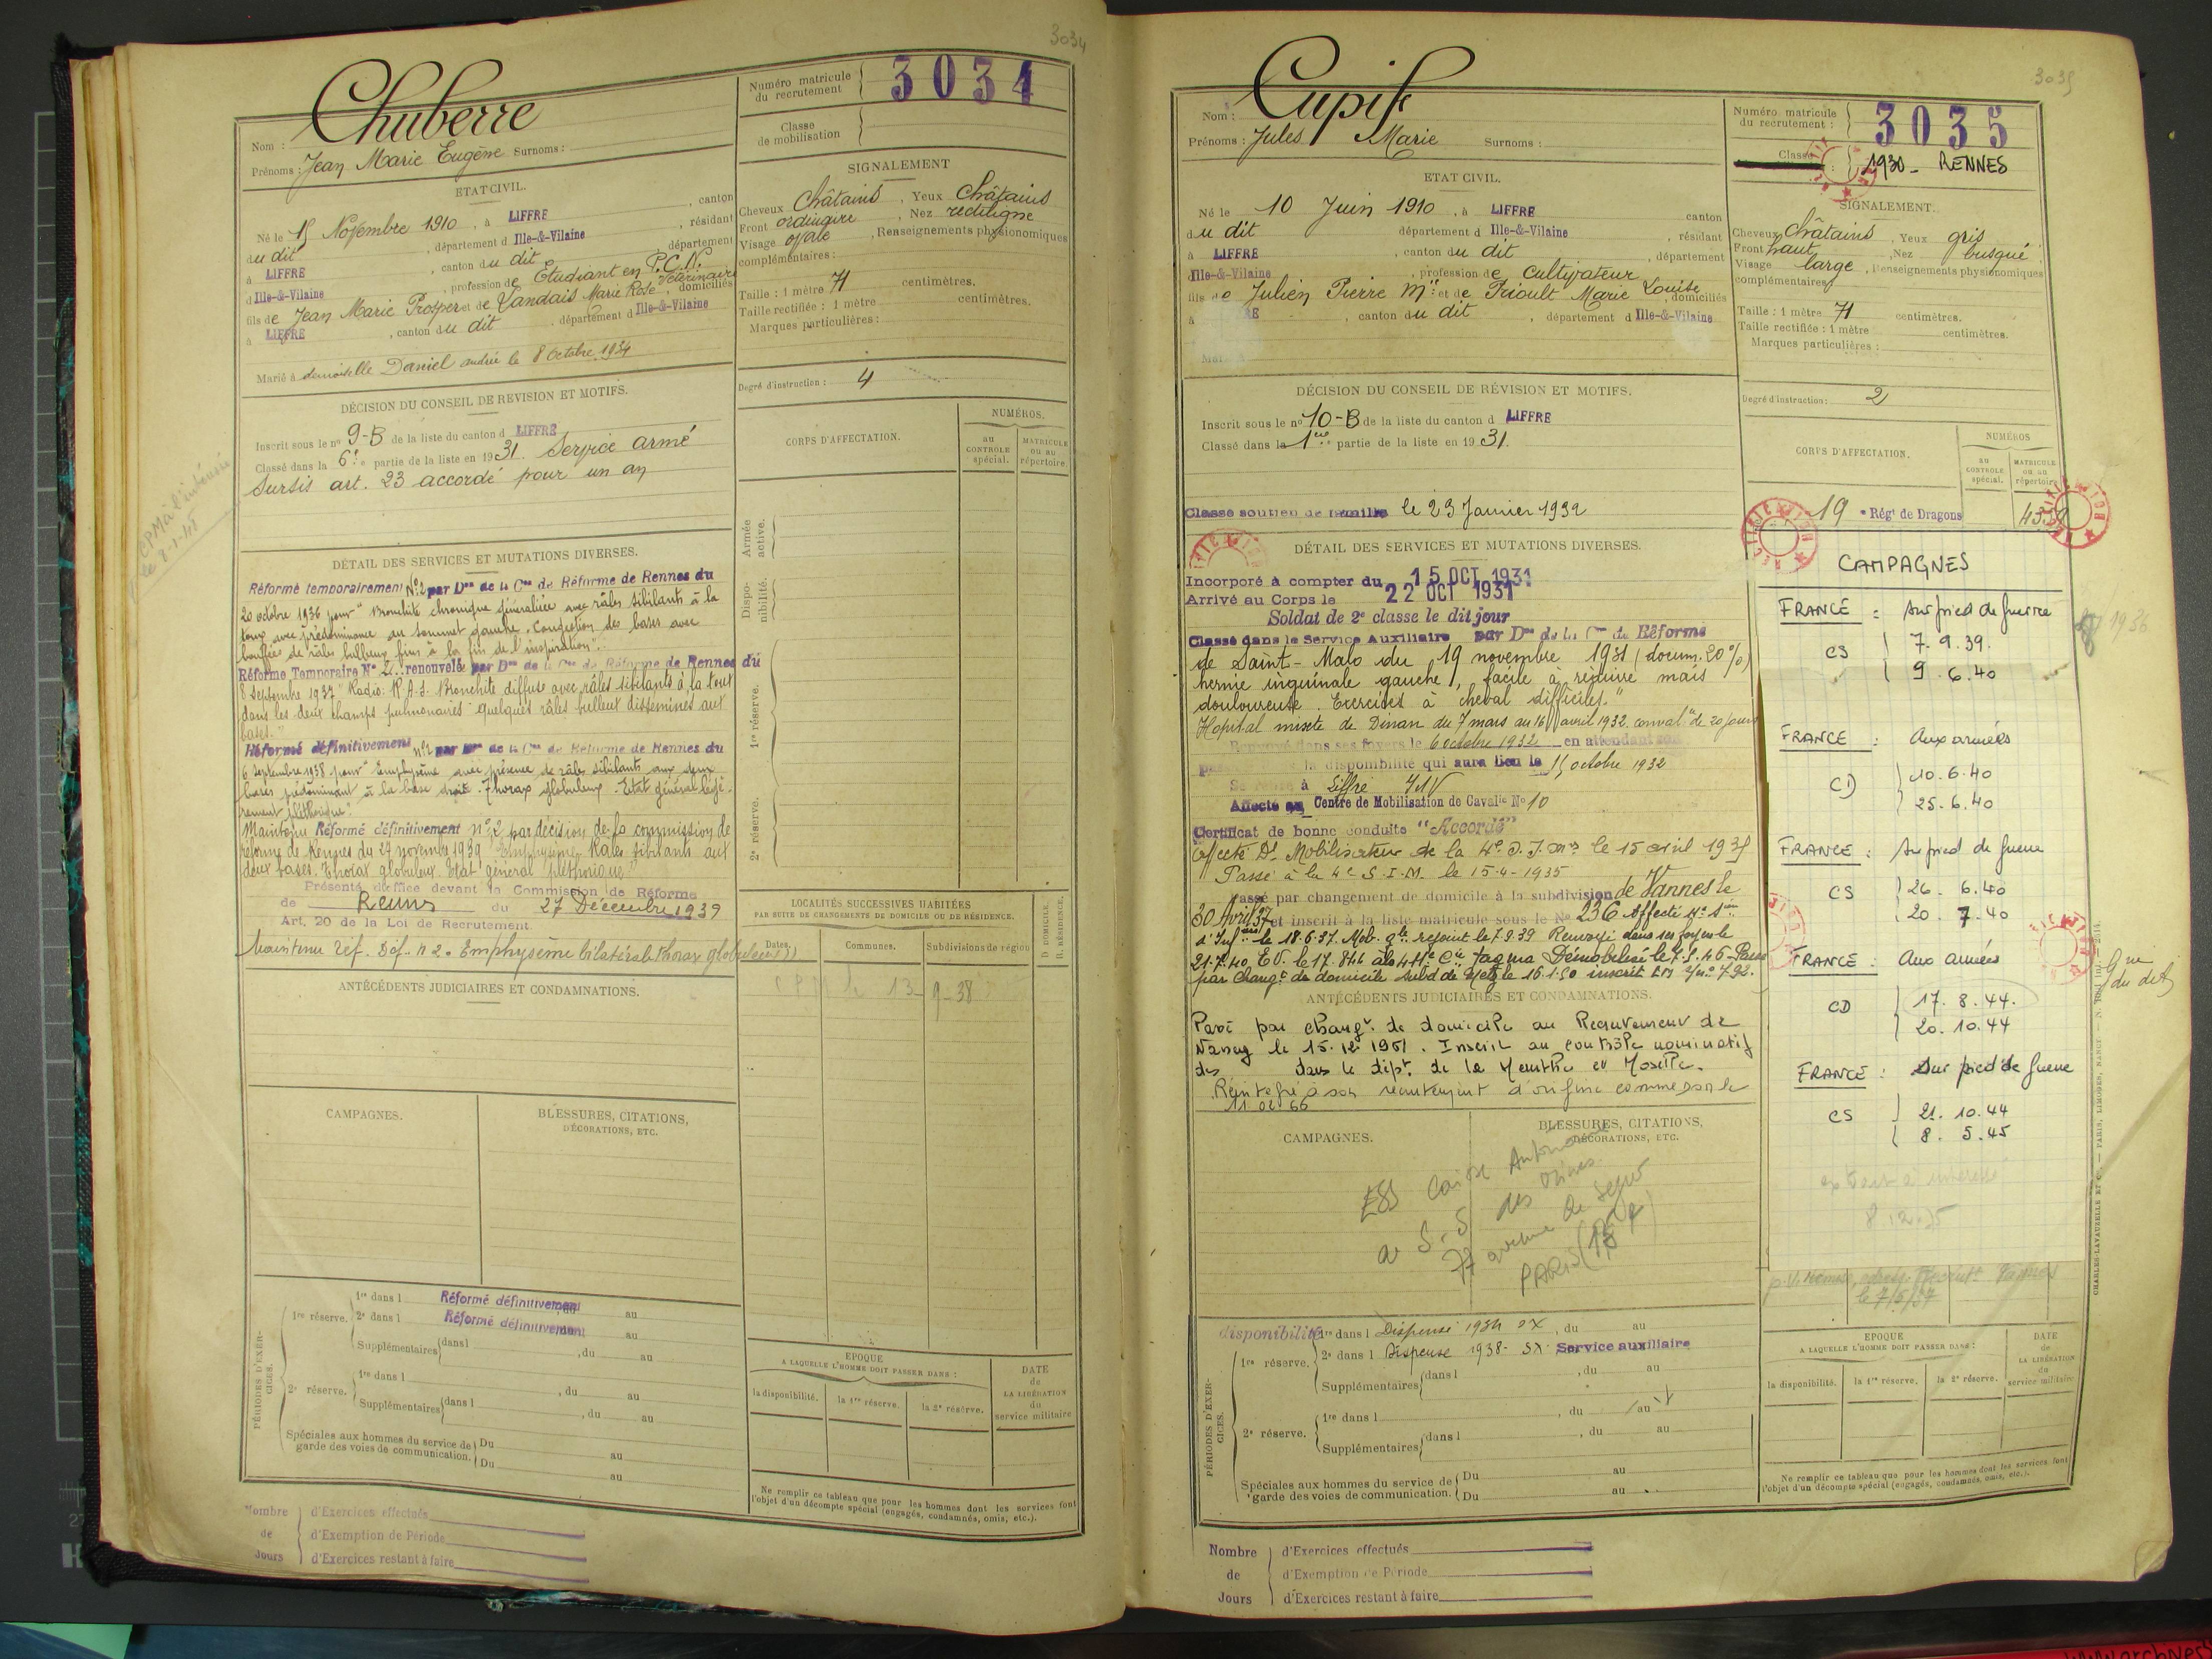 3034
Chuberre
Nom :
Prénoms : Jean Marie Eugène Surnoms :
Numéro matricule du recrutement 3034
Classe de mobilisation
ETAT CIVIL.
Né le 15 Novembre 1910, à LIFFRE, canton
du dit, département d Ille-&-Vilaine, résidant
à LIFFRE, canton du dit, département
d Ille-&-Vilaine, profession de Etudiant en P.C.N. Vétérinaire
fils de Jean Marie Prosper et de Landais Marie Rose, domiciliés
à LIFFRE, canton du dit, département d Ille-&-Vilaine
Marié à demoiselle Daniel Andrée le 8 Octobre 1934
SIGNALEMENT
Cheveux Châtains, Yeux Châtains
Front ordinaire, Nez rectiligne
Visage ovale, Renseignements physionomiques
complémentaires :
Taille : 1 mètre 71 centimètres.
Taille rectifiée : 1 mètre centimètres.
Marques particulières :
Degré d'instruction : 4
DÉCISION DU CONSEIL DE REVISION ET MOTIFS.
Inscrit sous le n° 9-B de la liste du canton d LIFFRE
Classé dans la 6e partie de la liste en 1931. Service armé
Sursis art. 23 accordé pour un an
CPM à l'intéressé
le 8-1-45
DÉTAIL DES SERVICES ET MUTATIONS DIVERSES.
Réformé temporairement N°2 par Don de la Con de Réforme de Rennes du
20 octobre 1936 pour "Bronchite chronique généralisée avec râles sibilants à la
toux avec prédominance au sommet gauche. Congestion des bases avec
bouffées de râles bulleux fins à la fin de l'inspiration".
Réforme Temporaire N° 2 renouvelée par Don de la Con de Réforme de Rennes du
8 Septembre 1937 "Radio: R.A.S. Bronchite diffuse avec râles sibilants à la toux
dans les deux champs pulmonaires quelques râles bulleux disséminés aux
bases."
Réformé définitivement n°2 par Don de la Con de Réforme de Rennes du
6 septembre 1938 pour "Emphysème avec présence de râles sibilants aux deux
bases prédominant à la base droite. Thorax globuleux. Etat général légè-
rement pléthorique".
Maintenu Réformé définitivement n°2 par décision de la commission de
réforme de Rennes du 29 novembre 1939 "Emphysème. Râles sibilants aux
deux bases. Thorax globuleux. Etat général pléthorique"
Présenté d'office devant la Commission de Réforme
de Rennes du 27 Décembre 1939
Art. 20 de la Loi de Recrutement.
Maintenu réf. Déf. n 2. Emphysème bilatéral thorax globuleux
ANTÉCÉDENTS JUDICIAIRES ET CONDAMNATIONS.
CAMPAGNES.
BLESSURES, CITATIONS, DÉCORATIONS, ETC.
CORPS D'AFFECTATION.
NUMÉROS.
au CONTROLE spécial.
MATRICULE ou au répertoire.
Armée active.
Disponibilité.
1re réserve.
2e réserve.
LOCALITÉS SUCCESSIVES HABITÉES
PAR SUITE DE CHANGEMENTS DE DOMICILE OU DE RÉSIDENCE.
Dates. Communes. Subdivisions de région
D. DOMICILE. R. RÉSIDENCE.
13-9-38
PÉRIODES D'EXERCICES.
1re réserve.
1re dans l Réformé définitivement au
2e dans l Réformé définitivement au
Supplémentaires dans l , du au
2e réserve.
1re dans l , du au
Supplémentaires dans l , du au
Spéciales aux hommes du service de garde des voies de communication.
Du au
Du au
EPOQUE
A LAQUELLE L'HOMME DOIT PASSER DANS :
la disponibilité. la 1re réserve. la 2e réserve.
DATE de LA LIBÉRATION du service militaire
Ne remplir ce tableau que pour les hommes dont les services font
l'objet d'un décompte spécial (engagés, condamnés, omis, etc.).
Nombre de Jours
d'Exercices effectués
d'Exemption de Période
d'Exercices restant à faire
3035
Cupif
Nom :
Prénoms : Jules Marie Surnoms :
Numéro matricule du recrutement : 3035
Classe 1930 - RENNES
ETAT CIVIL.
Né le 10 Juin 1910, à LIFFRE canton
du dit département d Ille-&-Vilaine, résidant
à LIFFRE, canton du dit, département
d Ille-&-Vilaine, profession de Cultivateur
fils de Julien Pierre Mie et de Frioult Marie Louise, domiciliés
à , canton du dit, département d Ille-&-Vilaine
SIGNALEMENT.
Cheveux Châtains, Yeux gris
Front haut, Nez busqué
Visage large, Renseignements physionomiques
complémentaires
Taille : 1 mètre 71 centimètres.
Taille rectifiée : 1 mètre centimètres.
Marques particulières :
Degré d'instruction : 2
DÉCISION DU CONSEIL DE RÉVISION ET MOTIFS.
Inscrit sous le n° 10-B de la liste du canton d LIFFRE
Classé dans la 1ère partie de la liste en 1931.
Classé soutien de famille le 23 Janvier 1932
CORPS D'AFFECTATION.
NUMÉROS
au CONTROLE spécial.
MATRICULE ou au répertoire
19e Régt de Dragons
DÉTAIL DES SERVICES ET MUTATIONS DIVERSES.
Incorporé à compter du 15 OCT 1931
Arrivé au Corps le 22 OCT 1931
Soldat de 2e classe le dit jour
Classé dans le Service Auxiliaire par Don de la Con de Réforme
de Saint-Malo du 19 novembre 1931 (docum. 20%)
hernie inguinale gauche, facile à réduire mais
douloureuse. Exercices à cheval difficiles."
Hopital mixte de Dinan du 7 mars au 16 avril 1932. convalon de 20 jours
Renvoyé dans ses foyers le 6 octobre 1932 en attendant son
la disponibilité qui aura lieu le 15 octobre 1932
à Liffré
Affecté au Centre de Mobilisation de Cavalie N° 10
Certificat de bonne conduite "Accordé"
affecté Dt Mobilisateur de la 4e le 15 avril 1935
Passé à la 4e S.I.M. le 15-4-1935
Passé par changement de domicile à la subdivision de Vannes le
30 Avril 37 et inscrit à la liste matricule sous le N° 236 Affecté 4e
le 18.6.37. Mob. gle rejoint le 7.9.39 Renvoyé dans ses foyers le
21.7.40. E.V. le 17.8.44 Démobilisé le
par changt de domicile subd de Metz le 16.1.50 inscrit n° 792.
ANTÉCÉDENTS JUDICIAIRES ET CONDAMNATIONS.
Passé par changt de domicile au Recrutement de
Nancy le 15.12.1951. Inscrit au contrôle nominatif
des dans le dépt. de la Meurthe et Moselle.
Réintégré à son recrutement d'origine
11 02 66
CAMPAGNES.
BLESSURES, CITATIONS, DÉCORATIONS, ETC.
Caisse Autonome
de S.S des Mines
77 avenue de Ségur
PARIS (15e)
CAMPAGNES
FRANCE : Sur pied de guerre
CS 7.9.39.
9.6.40
FRANCE : Aux armées
CD 10.6.40
25.6.40
FRANCE : Sur pied de guerre
CS 26.6.40
20.7.40
FRANCE : Aux armées
CD 17.8.44.
20.10.44
FRANCE : Sur pied de guerre
CS 21.10.44
8.5.45
1936
du dit
disponibilité
PÉRIODES D'EXERCICES.
1re réserve.
1re dans l Dispensé 1934 , du au
2e dans l Dispensé 1938 Service auxiliaire
Supplémentaires dans l , du au
2e réserve.
1re dans l , du au
Supplémentaires dans l , du au
Spéciales aux hommes du service de garde des voies de communication.
Du au
Du au
EPOQUE
A LAQUELLE L'HOMME DOIT PASSER DANS :
la disponibilité. la 1re réserve. la 2e réserve.
DATE de LA LIBÉRATION du service militaire
Ne remplir ce tableau que pour les hommes dont les services font
l'objet d'un décompte spécial (engagés, condamnés, omis, etc.).
Nombre de Jours
d'Exercices effectués
d'Exemption de Période
d'Exercices restant à faire
CHARLES-LAVAUZELLE ET Cie — PARIS, LIMOGES, NANCY